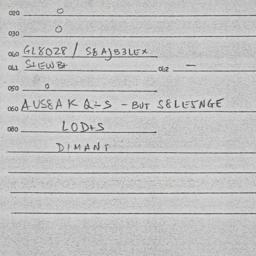 020 0
030 0
040 GL8028 / S8AJB3LEX
041 042 –
050 0
060 AUS8AK – BUT S8LE5NGE
080 LOD+S
DIMANT